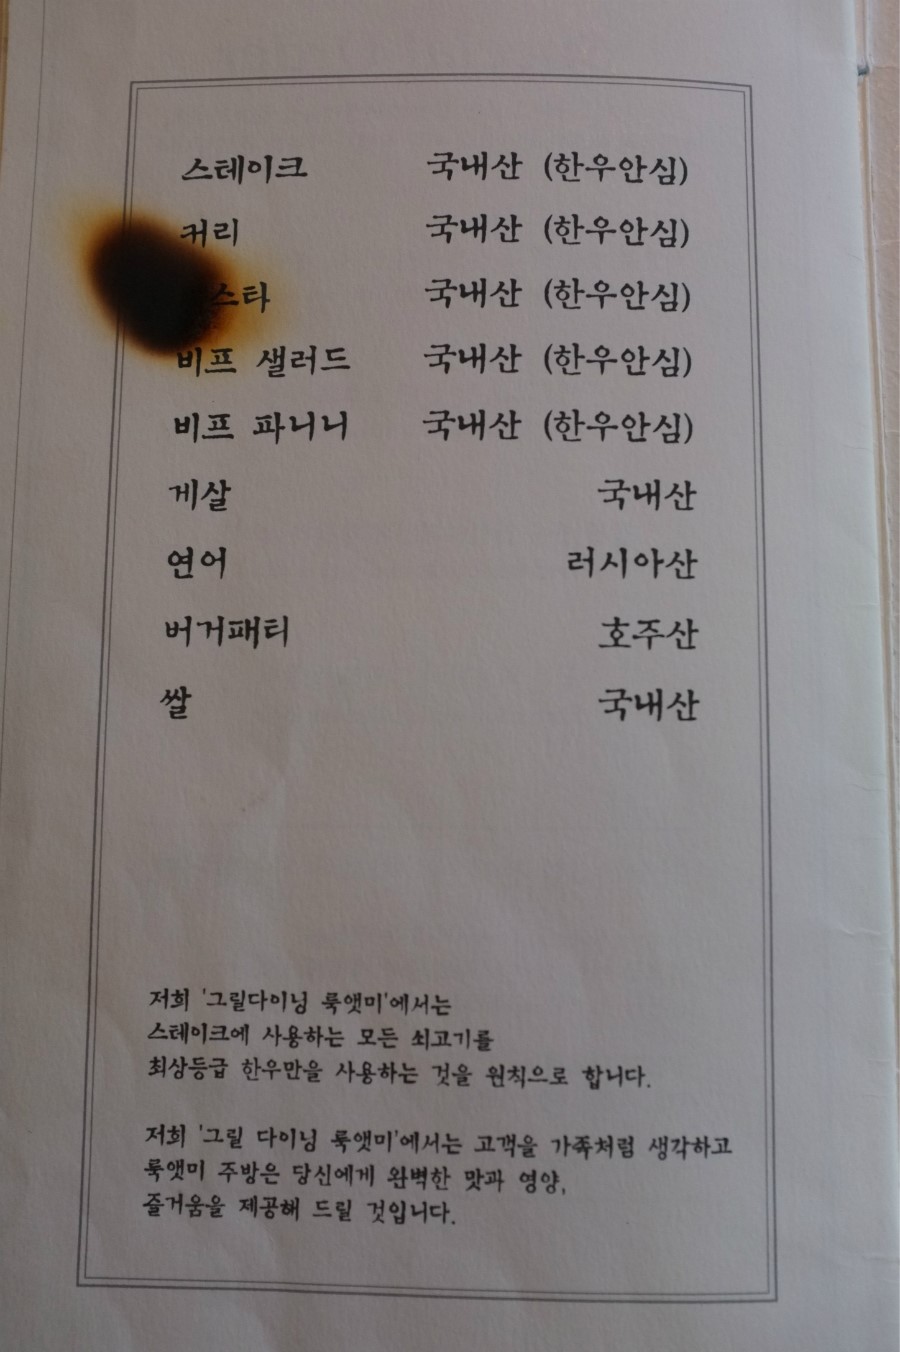 스테이크 국내산 (한우안심)
커리 국내산 (한우안심)
스타 국내산 (한우안심)
비프 샐러드 국내산 (한우안심)
비프 파니니 국내산 (한우안심)
게살 국내산
연어 러시아산
버거패티 호주산
쌀 국내산
저희 '그릴다이닝 룩앳미'에서는
스테이크에 사용하는 모든 쇠고기를
최상등급 한우만을 사용하는 것을 원칙으로 합니다.
저희 '그릴 다이닝 룩앳미'에서는 고객을 가족처럼 생각하고
룩앳미 주방은 당신에게 완벽한 맛과 영양,
즐거움을 제공해 드릴 것입니다.